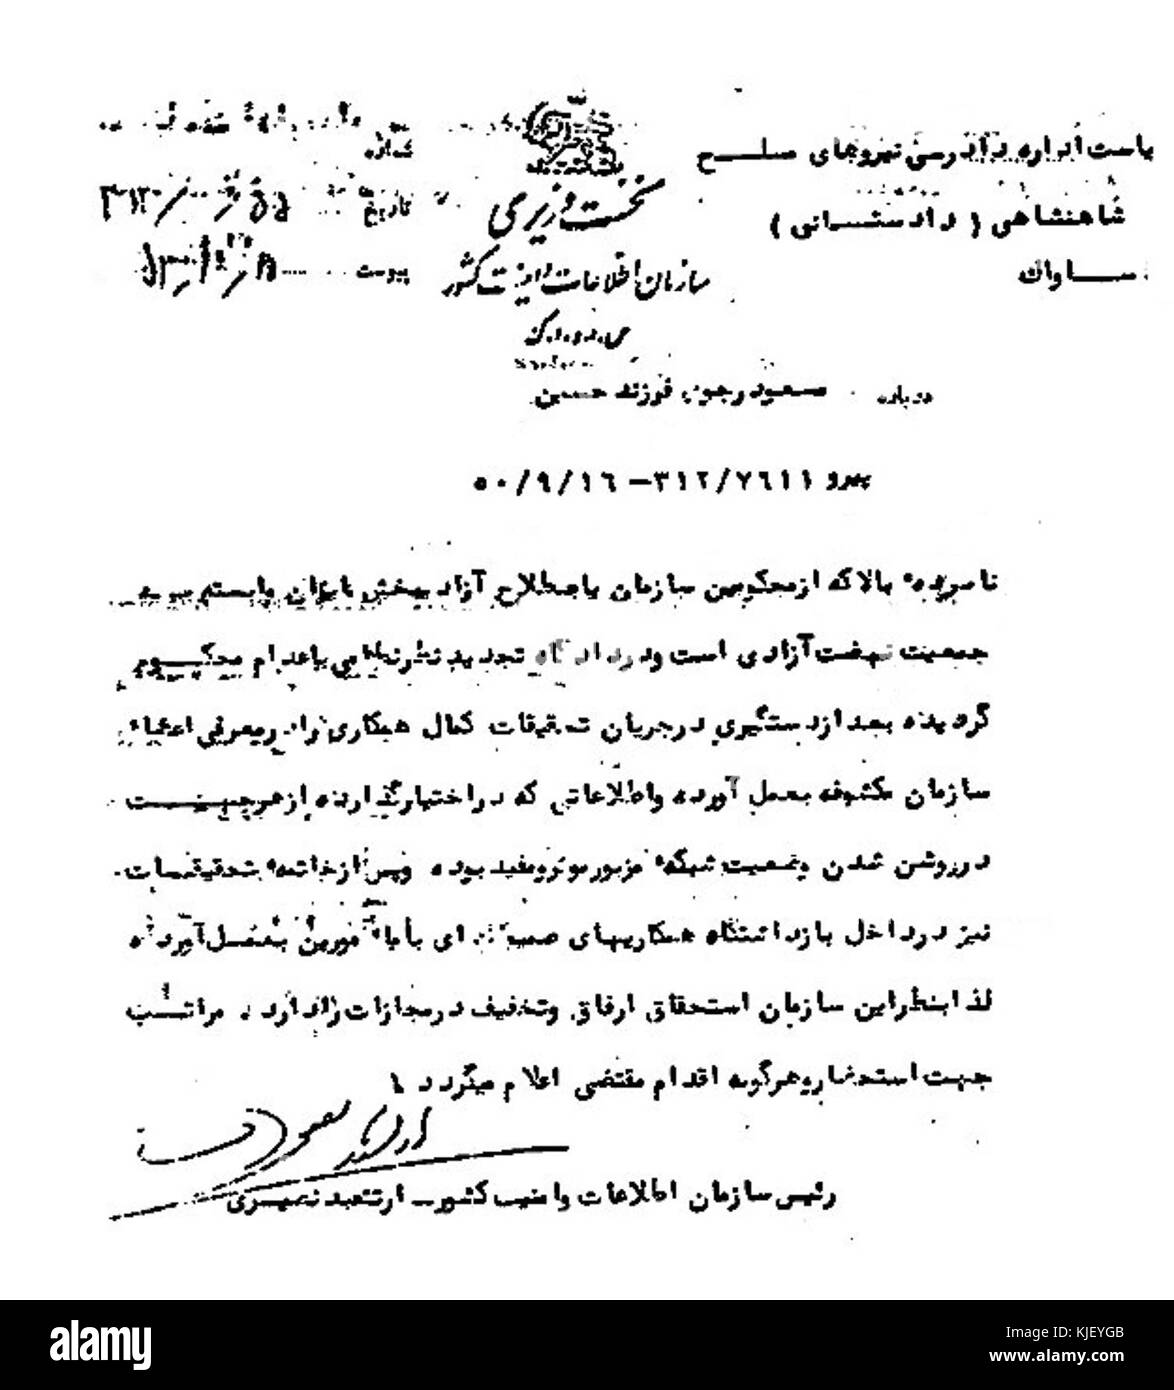 ریاست اداره دادرسی نیروهای مسلح
شاهنشاهی ( دادستانی )
ساواک
نخست وزیری
سازمان اطلاعات و امنیت کشور
س.ا.و.ا.ک
شماره
تاریخ
پیوست
درباره مسعود رجوی فرزند حسین
پیرو ۳۱۲/۷۶۱۱ – ۵۰/۹/۱۶
نامبرده بالا که از محکومین سازمان باصطلاح آزادیبخش ایران وابسته به
جمعیت نهضت آزادی است و در دادگاه تجدید نظر نظامی باعدام محکوم
گردیده بعد از دستگیری در جریان تحقیقات کمال همکاری را در معرفی اعضاء
سازمان مکشوفه بعمل آورده و اطلاعاتی که در اختیار گذارده از هر جهت
در روشن شدن وضعیت شبکه مزبور موثر و مفید بوده و پس از خاتمه تحقیقات
نیز در داخل بازداشتگاه همکاریهای صمیمانه ای با مامورین بعمل آورده
لذا بنظر این سازمان استحقاق ارفاق و تخفیف در مجازات را دارد . مراتب
جهت استحضار و هرگونه اقدام مقتضی اعلام میگردد
رئیس سازمان اطلاعات و امنیت کشور – ارتشبد نصیری
alamy
Image ID: KJEYGB
www.alamy.com